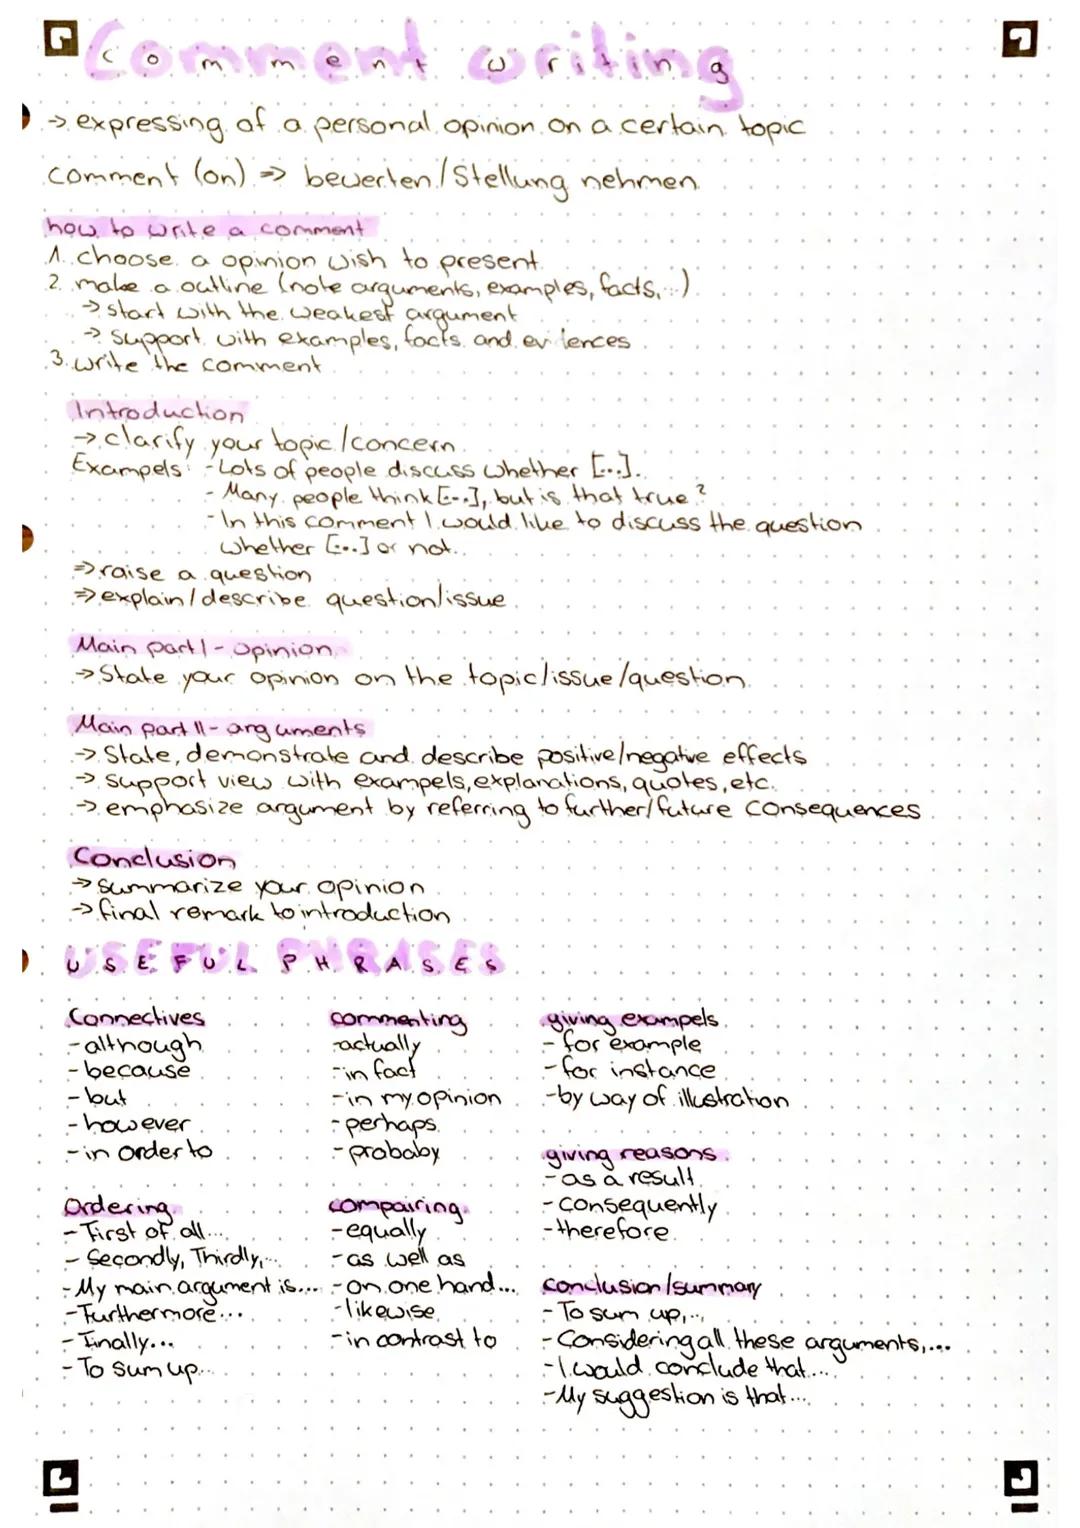 Comment writing
→ expressing of a personal opinion on a certain topic
comment (on) => bewerten/Stellung nehmen
how to write a comment
1. choose a opinion wish to present
2. make a outline (note arguments, examples, facts,...)
→ start with the weakest argument
→ support with examples, facts and evidences
3. write the comment
Introduction
→ clarify your topic/concern
Exampels: - Lots of people discuss whether [...].
- Many people think [...], but is that true?
- In this comment I would like to discuss the question
whether [...] or not.
=> raise a question
=> explain/describe question/issue
Main part I - opinion
→ State your opinion on the topic/issue/question
Main part II - arguments
→ State, demonstrate and describe positive/negative effects
→ support view with exampels, explanations, quotes, etc.
→ emphasize argument by referring to further/future consequences
Conclusion
→ summarize your opinion
→ final remark to introduction
USEFUL PHRASES
Connectives
- although
- because
- but
- however
- in order to
Ordering
- First of all...
- Secondly, Thirdly,...
- My main argument is...
- Furthermore...
- Finally...
- To sum up...
commenting
- actually
- in fact
- in my opinion
- perhaps
- probaby
compairing
- equally
- as well as
- on one hand...
- likewise
- in contrast to
giving exampels
- for example
- for instance
- by way of illustration
giving reasons
- as a result
- consequently
- therefore
conclusion/summary
- To sum up,...
- Considering all these arguments,...
- I would conclude that...
- My suggestion is that...